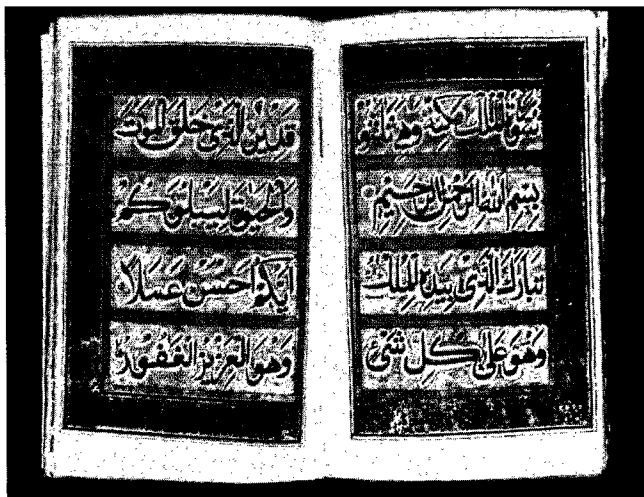 سُورَةُ المُلْكِ مَكِيَّة وَهِيَ ثَلٰثُونَ
بِسْمِ اللهِ الرَّحْمٰنِ الرَّحِيمِ
تَبَارَكَ الَّذِى بِيَدِهِ المُلْكُ
وَهُوَ عَلَى كُلِّ شَىْءٍ
قَدِيرٌ الَّذِى خَلَقَ المَوْتَ
وَالحَيٰوةَ لِيَبْلُوَكُمْ
اَيُّكُمْ اَحْسَنُ عَمَلًا
وَهُوَ العَزِيزُ الغَفُورُ